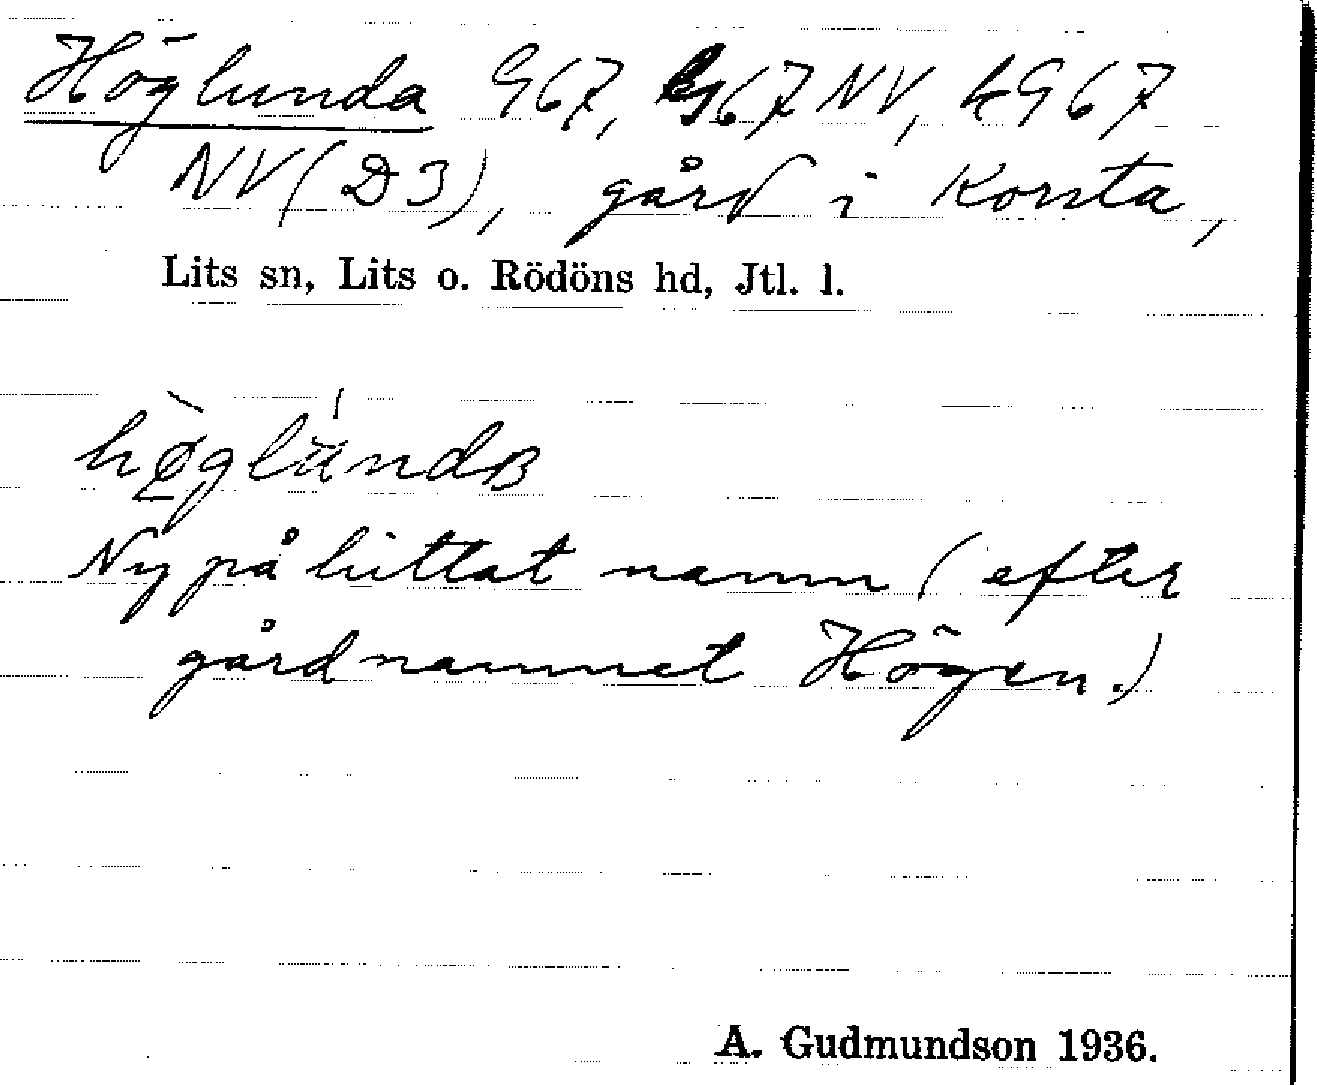 Höglunda G67, G67NV, kG67
NV(D3), gård i Korsta,
Lits sn, Lits o. Rödöns hd, Jtl. l.
Ny påhittat namn (efter
gårdnamnet Högen.)
A. Gudmundson 1936.